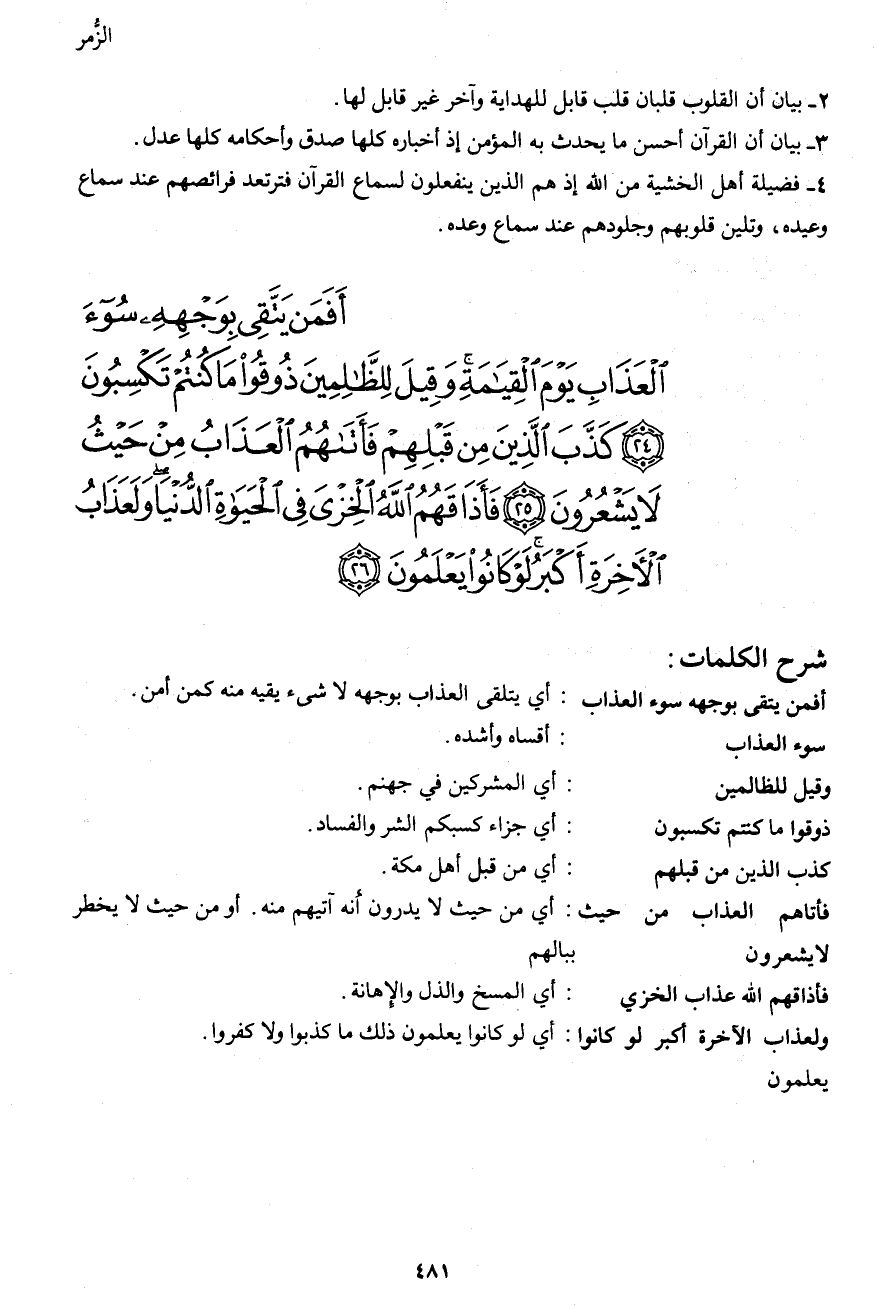 الزُّمر
٢ـ بيان أن القلوب قلبان قلب قابل للهداية وآخر غير قابل لها.
٣ـ بيان أن القرآن أحسن ما يحدث به المؤمن إذ أخباره كلها صدق وأحكامه كلها عدل.
٤ـ فضيلة أهل الخشية من الله إذ هم الذين ينفعلون لسماع القرآن فترتعد فرائصهم عند سماع
وعيده، وتلين قلوبهم وجلودهم عند سماع وعده.
أَفَمَن يَتَّقِى بِوَجْهِهِۦ سُوٓءَ
ٱلْعَذَابِ يَوْمَ ٱلْقِيَٰمَةِۚ وَقِيلَ لِلظَّٰلِمِينَ ذُوقُوا۟ مَا كُنتُمْ تَكْسِبُونَ
﴿٢٤﴾ كَذَّبَ ٱلَّذِينَ مِن قَبْلِهِمْ فَأَتَىٰهُمُ ٱلْعَذَابُ مِنْ حَيْثُ
لَا يَشْعُرُونَ ﴿٢٥﴾ فَأَذَاقَهُمُ ٱللَّهُ ٱلْخِزْىَ فِى ٱلْحَيَوٰةِ ٱلدُّنْيَاۖ وَلَعَذَابُ
ٱلْءَاخِرَةِ أَكْبَرُۚ لَوْ كَانُوا۟ يَعْلَمُونَ ﴿٢٦﴾
شرح الكلمات :
أفمن يتقى بوجهه سوء العذاب : أي يتلقى العذاب بوجهه لا شىء يقيه منه كمن أمن.
سوء العذاب : أقساه وأشده.
وقيل للظالمين : أي المشركين في جهنم.
ذوقوا ما كنتم تكسبون : أي جزاء كسبكم الشر والفساد.
كذب الذين من قبلهم : أي من قبل أهل مكة.
فأتاهم العذاب من حيث : أي من حيث لا يدرون أنه آتيهم منه. أو من حيث لا يخطر
لايشعرون ببالهم
فأذاقهم الله عذاب الخزي : أي المسخ والذل والإهانة.
ولعذاب الآخرة أكبر لو كانوا : أي لو كانوا يعلمون ذلك ما كذبوا ولا كفروا.
يعلمون
٤٨١